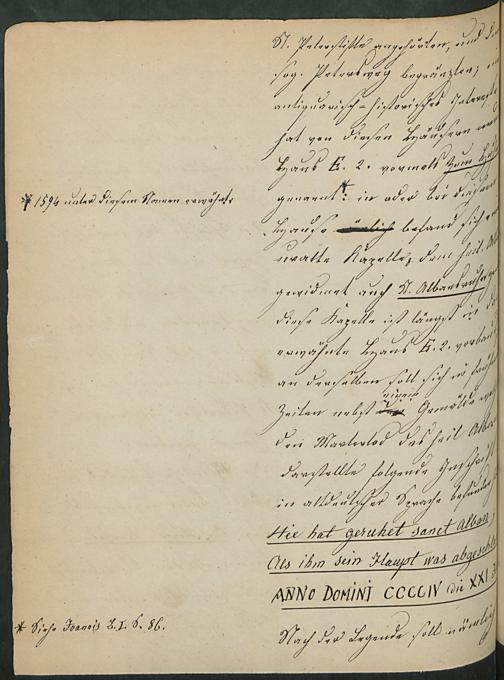 St. Peterstifte angehörten, und
sog. Petersweg begränzten;
antiquarisch-historisches Interesse
hat von diesen Häusern
Haus E. 2. vormals Zum
genannt*: in oder bei diesem
Hause befand sich
uralte Kapelle, dem heil.
gewidmet auch St. Albansruhe
diese Kapelle ist längst in
erwähnte Haus E. 2. verbaut
an derselben soll sich in früheren
Zeiten nebst einem Gemälde
den Martertod des heil. Alban
darstellte folgende Inschrift
in altdeutscher Sprache befunden
Hie hat geruhet sanct Alban
Als ihm sein Haupt was abgeschla
ANNO DOMINI CCCCIV die XXI
Nach der Legende soll nämlich
* 1594 unter diesem Namen erwähnt
* Siehe Joannis T. I. S. 86.